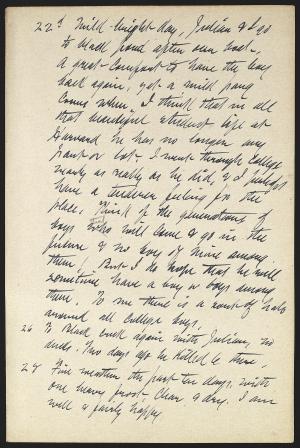 22d Mild bright day, Julian & I go
to black pond after our boat.
A great comfort to have the boy
back again; yet a mild pang
comes when I think that in all
that beautiful student life at
Harvard he has no longer any
part or lot. I went through College
nearly as really as he did, & I
have a tender feeling for the
place. Think of the generations of
boys who will come & go in the
future & no boy of mine among
them! But I do hope that he will
sometime have a boy or boys among
them. To me there is a sort of halo
around all College boys.
26 To Black again with Julian, no
ducks. Two days ago he killed 6 there,
28 Fine weather the past ten days, with
one heavy frost. Clear & dry. I am
well & fairly happy.